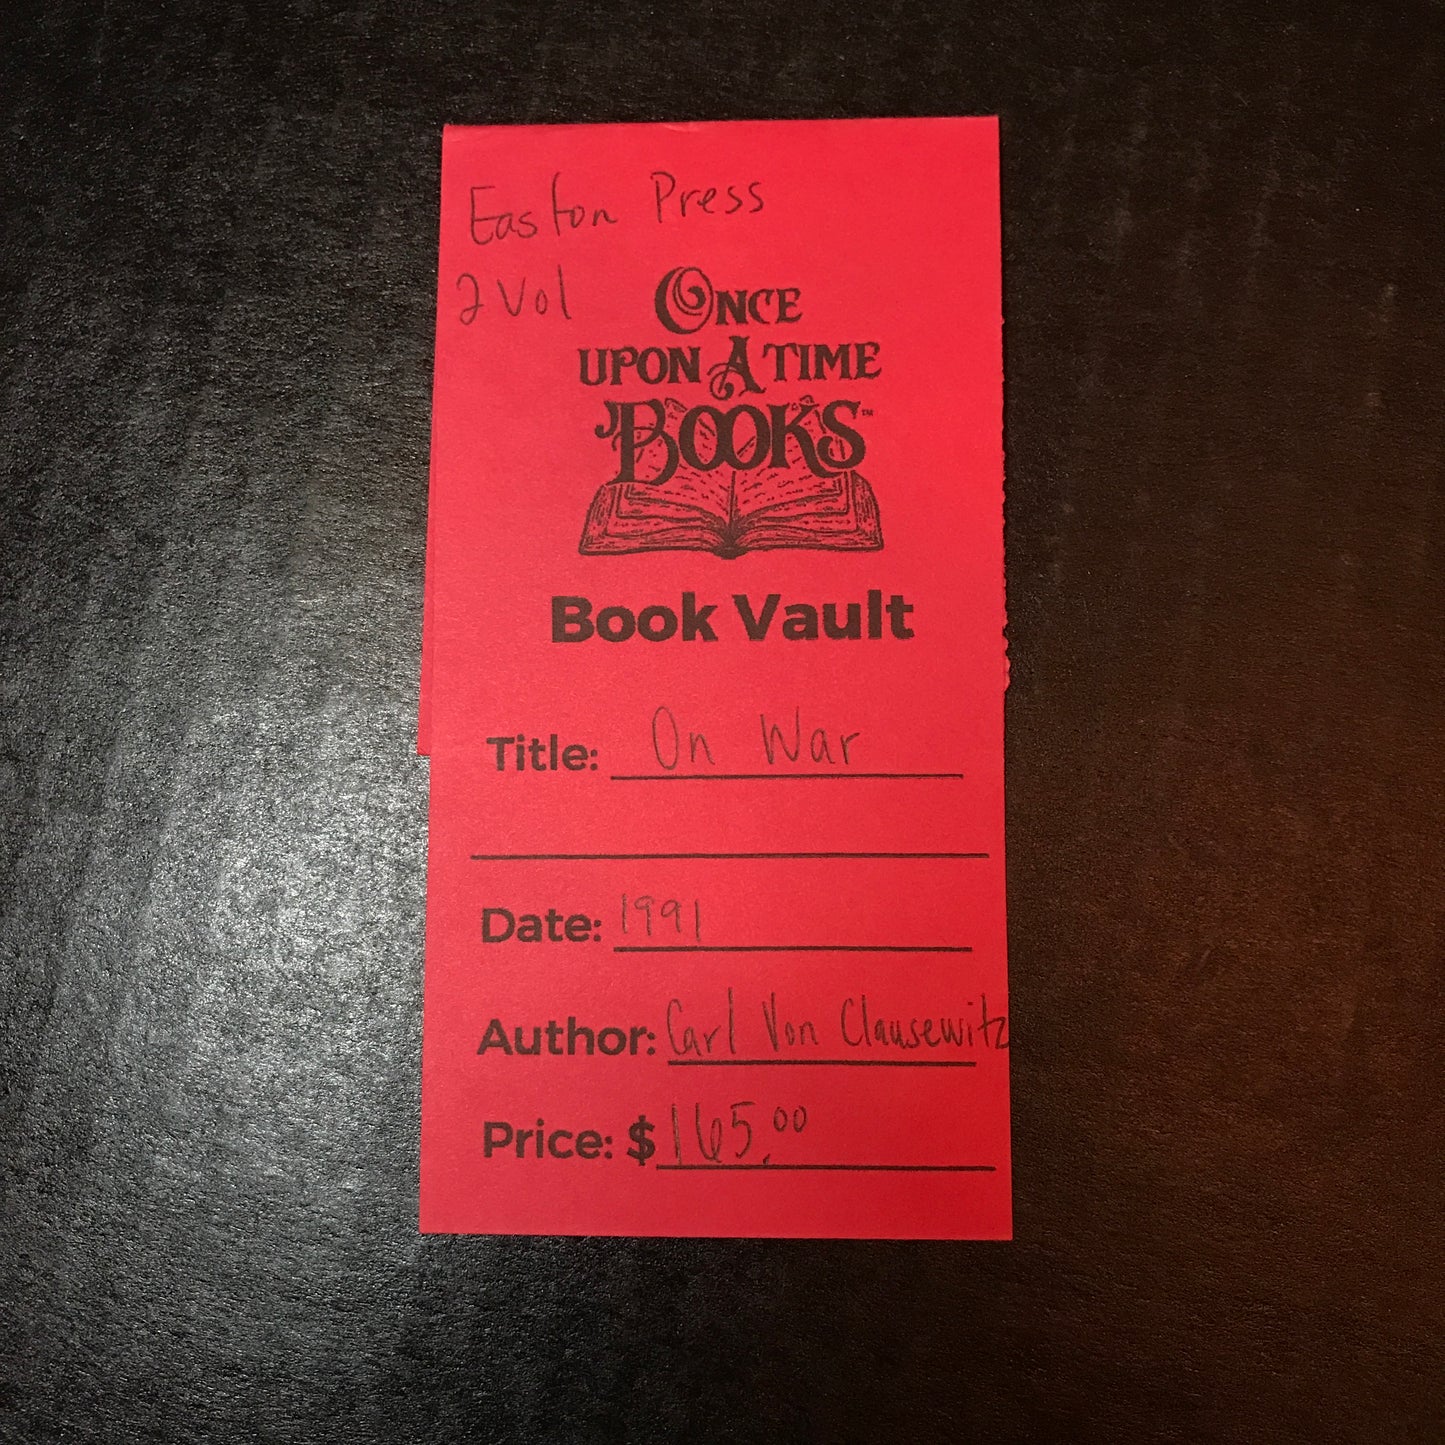 Easton Press
2 Vol
ONCE
UPON A TIME
BOOKS™
Book Vault
Title: On War
Date: 1991
Author: Carl Von Clausewitz
Price: $165.00